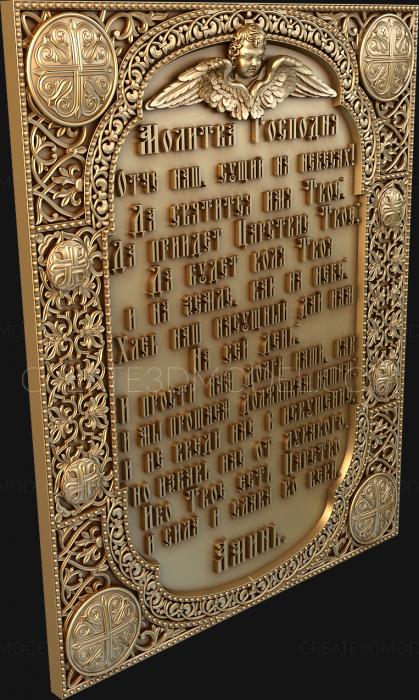 Молитва Господня
Отче наш, сущий на небесах!
Да святится имя Твое;
Да приидет Царствие Твое;
Да будет воля Твоя
и на земле, как на небе;
Хлеб наш насущный дай нам
На сей день;
И прости нам долги наши, как
и мы прощаем должникам нашим;
и не введи нас в искушение,
но избавь нас от лукавого.
Ибо Твое есть Царство
и сила и слава во веки.
Аминь.
CREATE3DMODEL
CREATE3DMODE